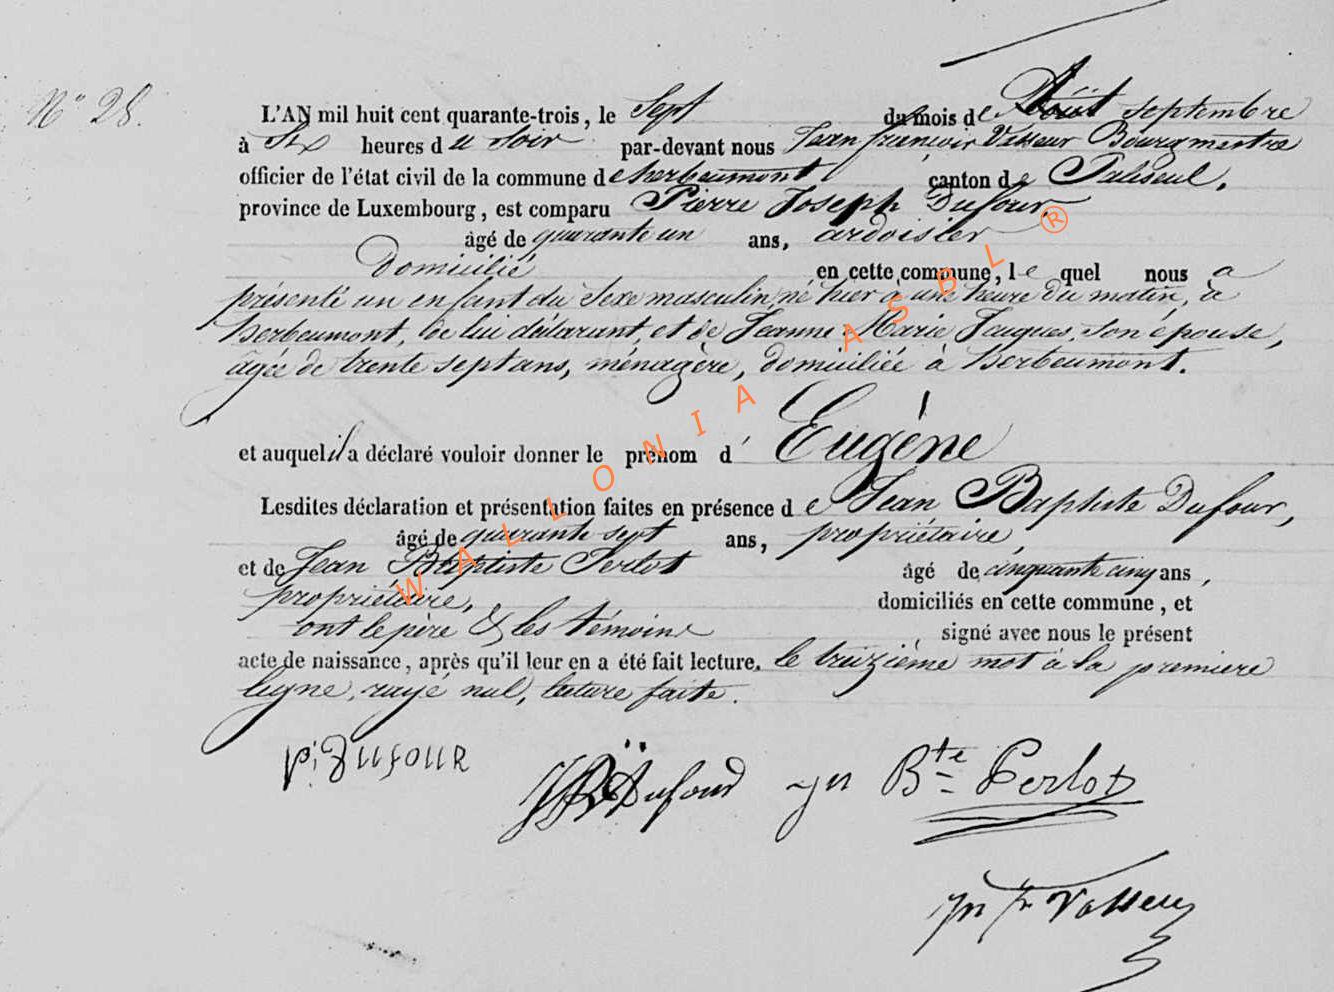 N° 28.
L'AN mil huit cent quarante-trois, le Sept du mois de Août septembre
à Six heures du soir par-devant nous Jean françois Vasseur Bourgmestre
officier de l'état civil de la commune de herbeumont canton de Paliseul,
province de Luxembourg, est comparu Pierre Joseph Dufour
âgé de quarante un ans, ardoisier
Domicilié en cette commune, lequel nous a
présenté un enfant du Sexe masculin, né hier à une heure du matin, à
herbeumont, de lui déclarant, et de Jeanne Marie Jaques, son épouse,
agée de trente sept ans, ménagère, domiciliée à herbeumont.
et auquel il a déclaré vouloir donner le prénom d' Eugène
Lesdites déclaration et présentation faites en présence de Jean Baptiste Dufour,
âgé de quarante sept ans, propriétaire
et de Jean Baptiste Perlot âgé de cinquante cinq ans,
propriétaire, domiciliés en cette commune, et
ont le père & les témoins signé avec nous le présent
acte de naissance, après qu'il leur en a été fait lecture. le treizième mot à la premiere
ligne, rayé nul, lecture faite.
p:j Dufour
JB Dufour jn Bte Perlot
jn fr Vasseur
WALLONIA ASBL ®